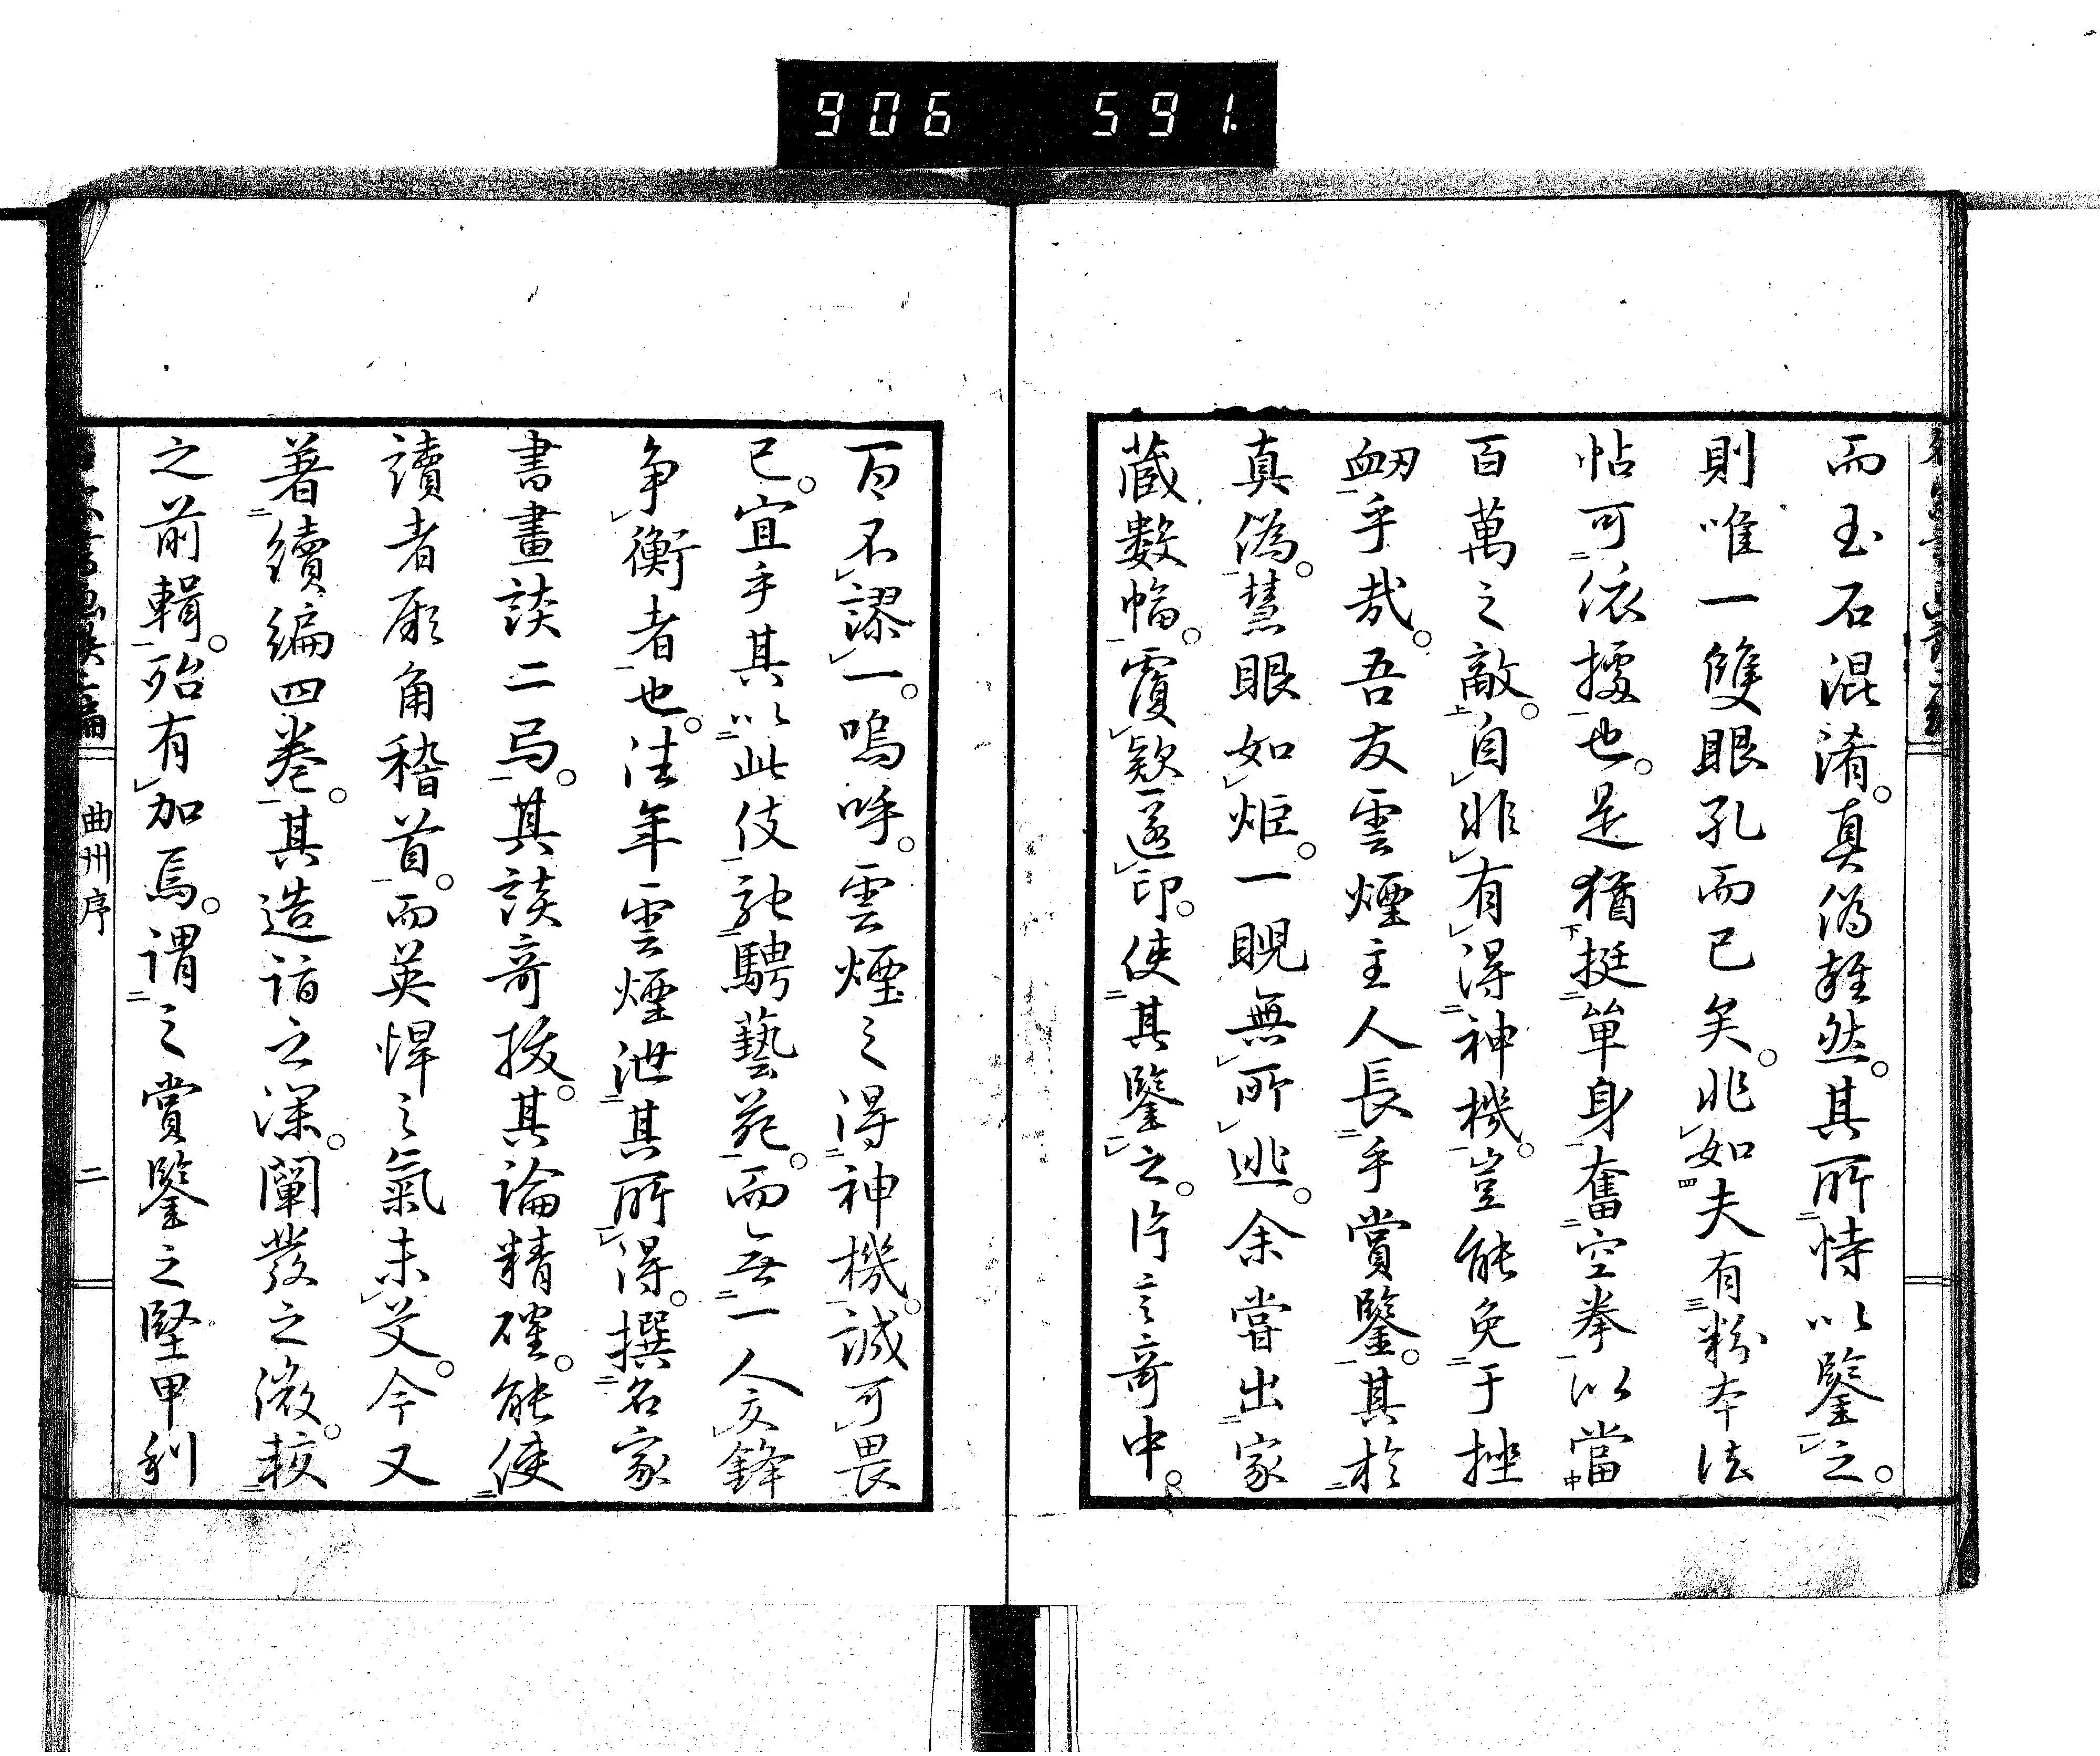 906 591.
而玉石混淆。真偽雜然。其所恃以鑒之。
則唯一雙眼孔而已矣。非如夫有粉本法
帖可依據也。是猶挺單身奮空拳以當
百萬之敵。自非有得神機。豈能免于挫
衂乎哉。吾友雲煙主人長乎賞鑒。其於
真偽。慧眼如炬。一睨無所逃。余嘗出家
蔵数幅。覆款遮印。使其鑒之。片言奇中。
百不謬一。嗚呼。雲煙之得神機。誠可畏
已。宜乎其以此伎馳騁藝苑。而無一人交鋒
争衡者也。往年雲煙泄其所得。撰名家
書畫談二弓。其談奇拔。其論精確。能使
讀者厥角稽首。而英悍之氣未艾。今又
著續編四卷。其造詣之深。闡發之微。挍
之前輯。殆有加焉。謂之賞鑒之堅甲利
曲州序
二